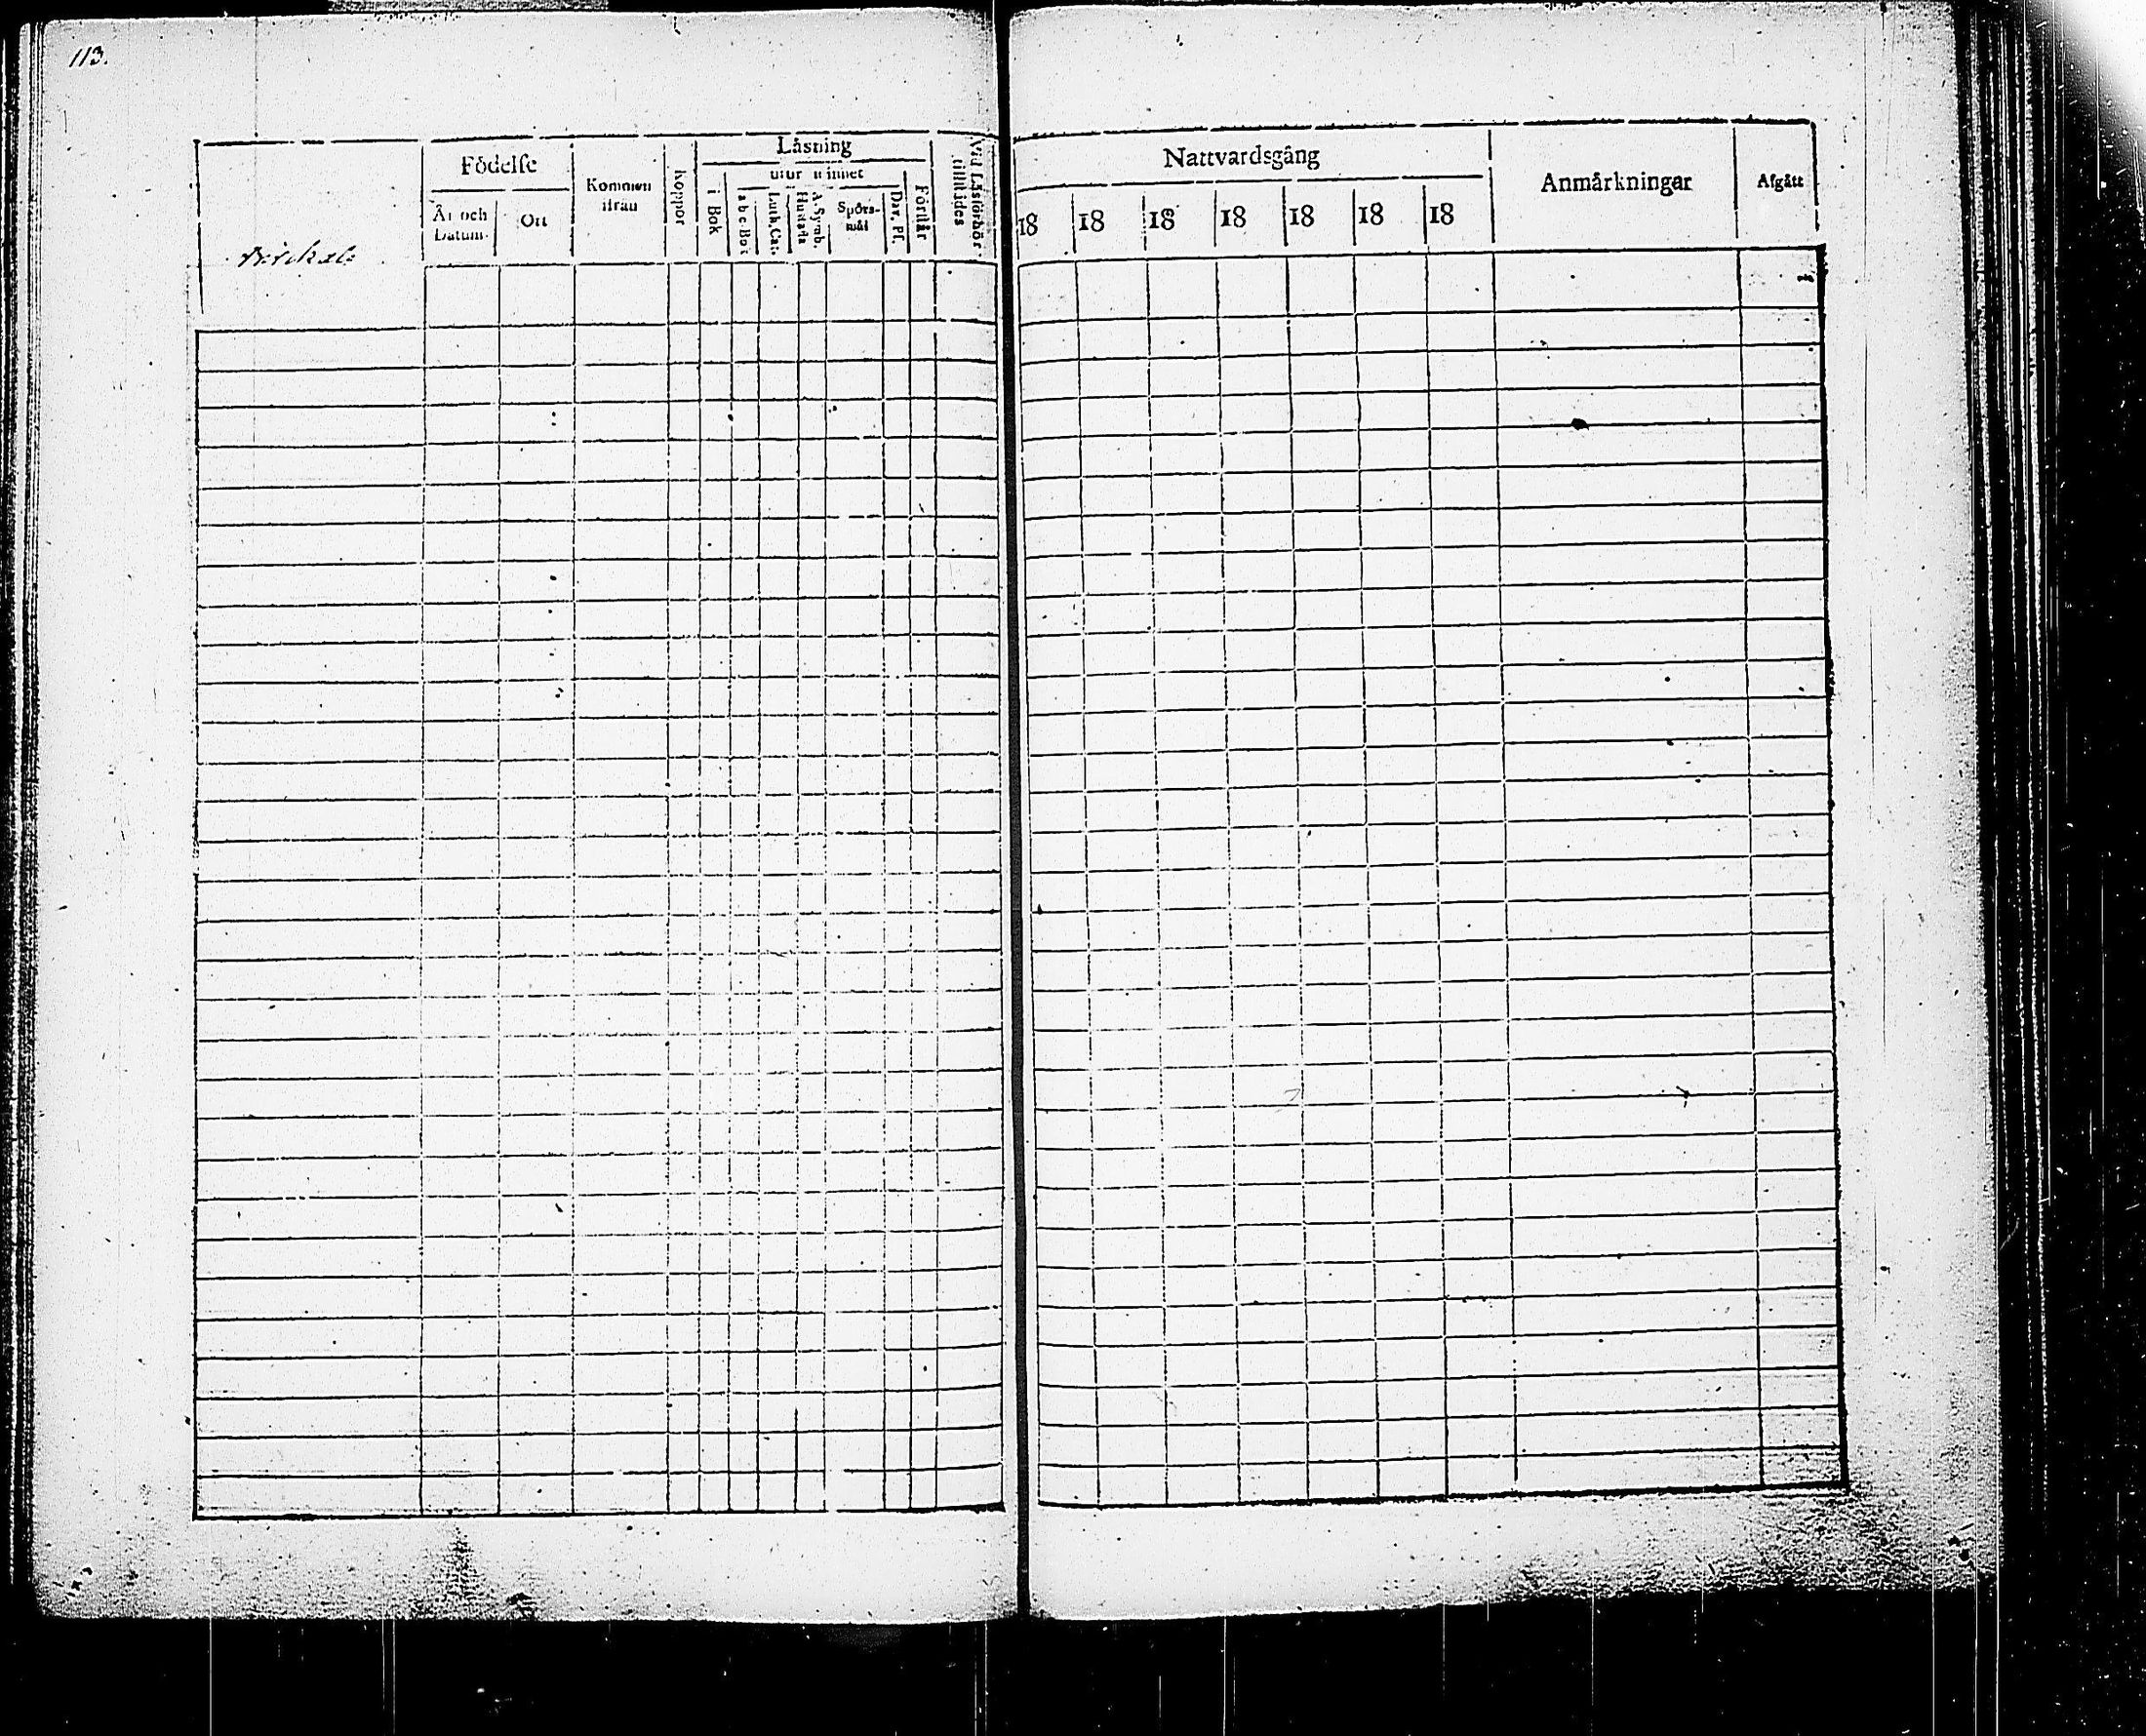 113.
Födelse
År och Datum.
Ort
Kommen ifrån
Koppor
Låsning
utur minnet
i Bok
a b c-Bok
Luth. Cat.
Hustafla A. Symb.
Spörsmål
Dav. Ps.
Förstår
Vid Läsförhör tillstädes
Nattvardsgång
18 18 18 18 18 18 18
Anmårkningar
Afgått